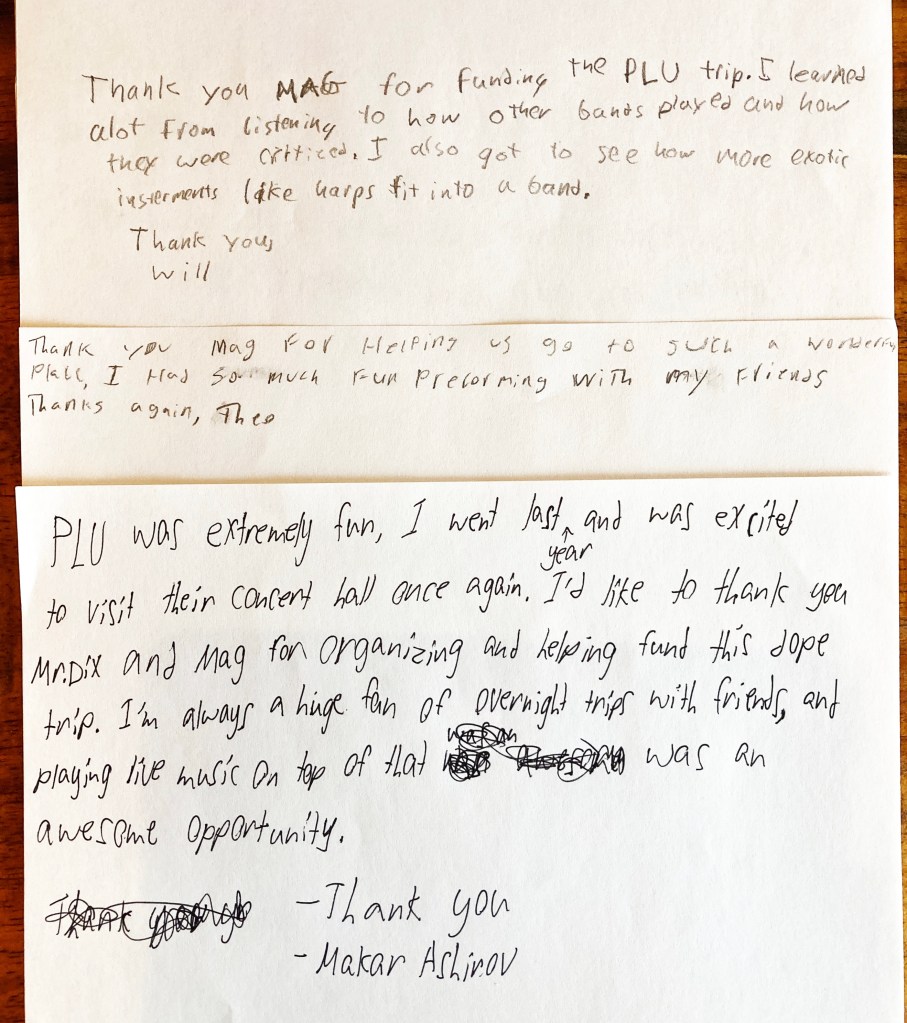 Thank you MAG for funding the PLU trip. I learned
alot from listening to how other bands played and how
they were criticed. I also got to see how more exotic
insterments like harps fit into a band.
Thank you,
Will
Thank you Mag For Helping us go to such a wonderful
Place, I Had so much Fun Preforming with my Friends
Thanks again, Theo
PLU was extremely fun, I went last year and was excited
to visit their concert hall once again. I'd like to thank you
Mr.Dix and Mag for organizing and helping fund this dope
trip. I'm always a huge fan of overnight trips with friends, and
playing live music on top of that was an
awesome opportunity.
-Thank you
-Makar Ashirov